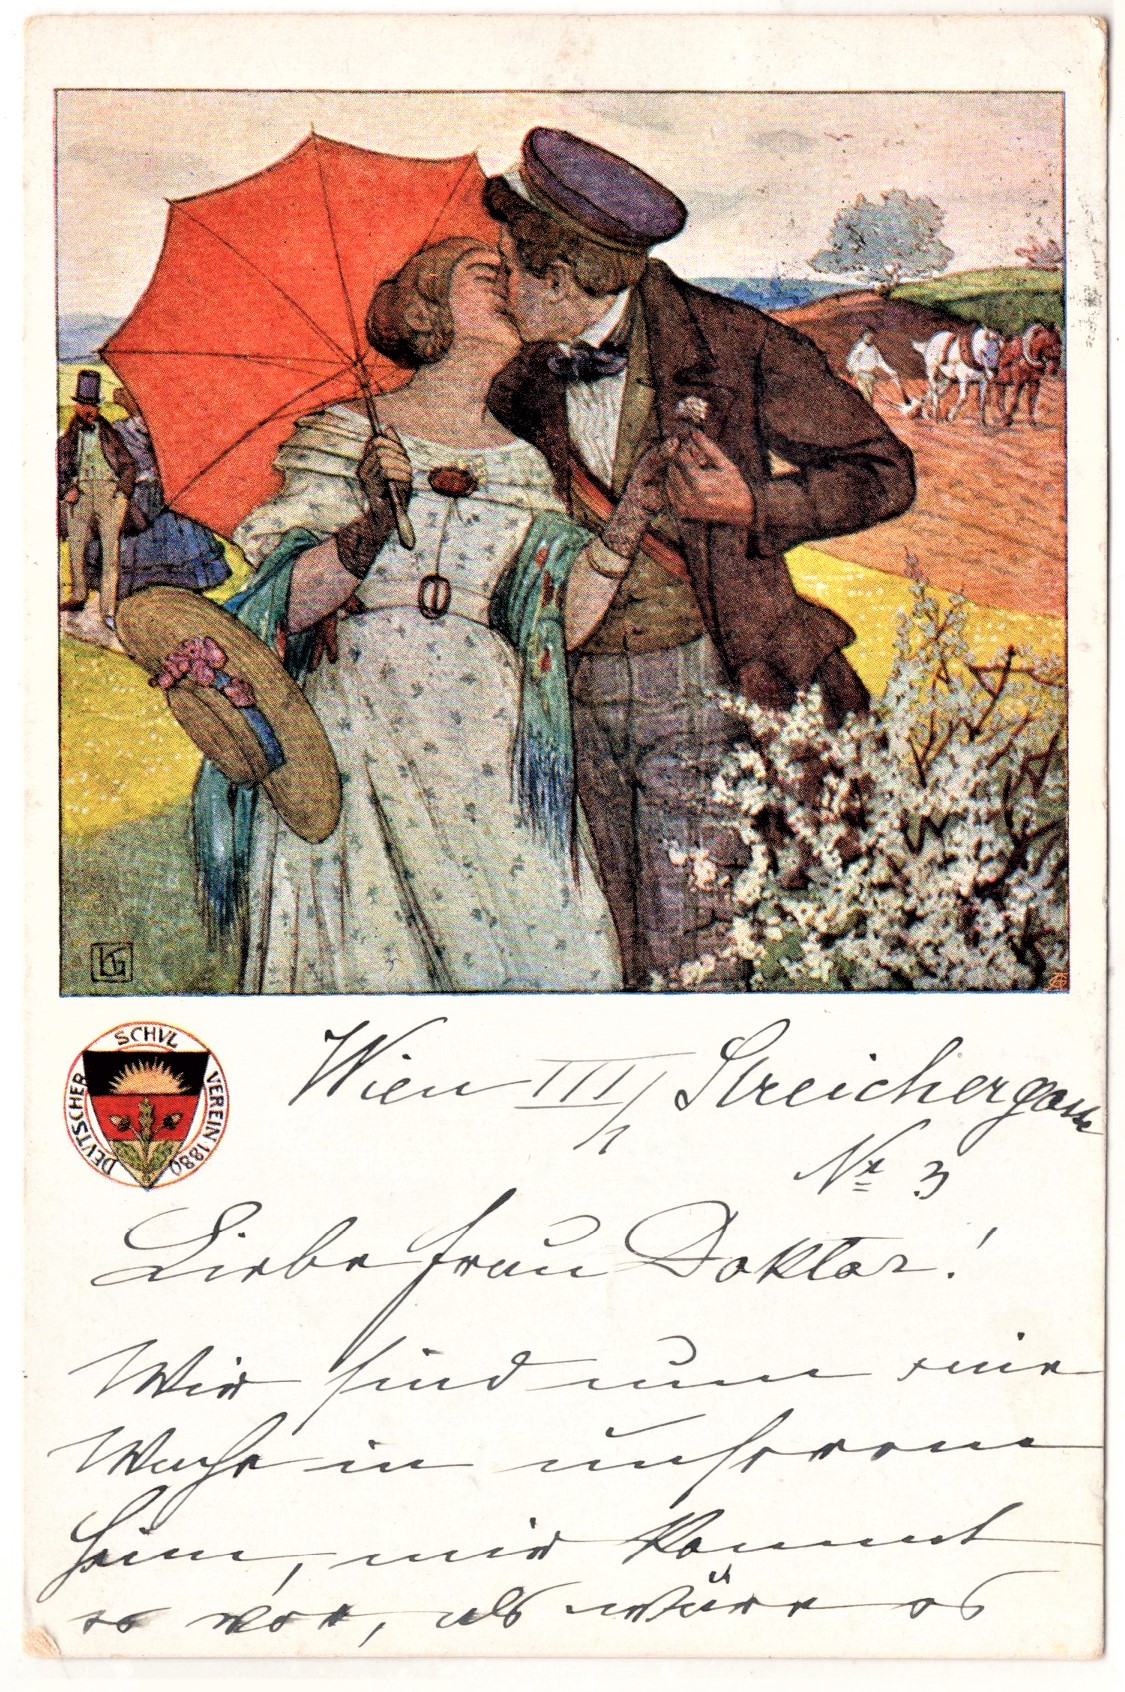 DEVTSCHER SCHVL VEREIN 1880
Wien III/1 Streichergasse
Nr 3
Liebe Frau Doktor!
Wir sind nun eine
Woche in unserem
Heim, mir kommt
es vor, als wäre es